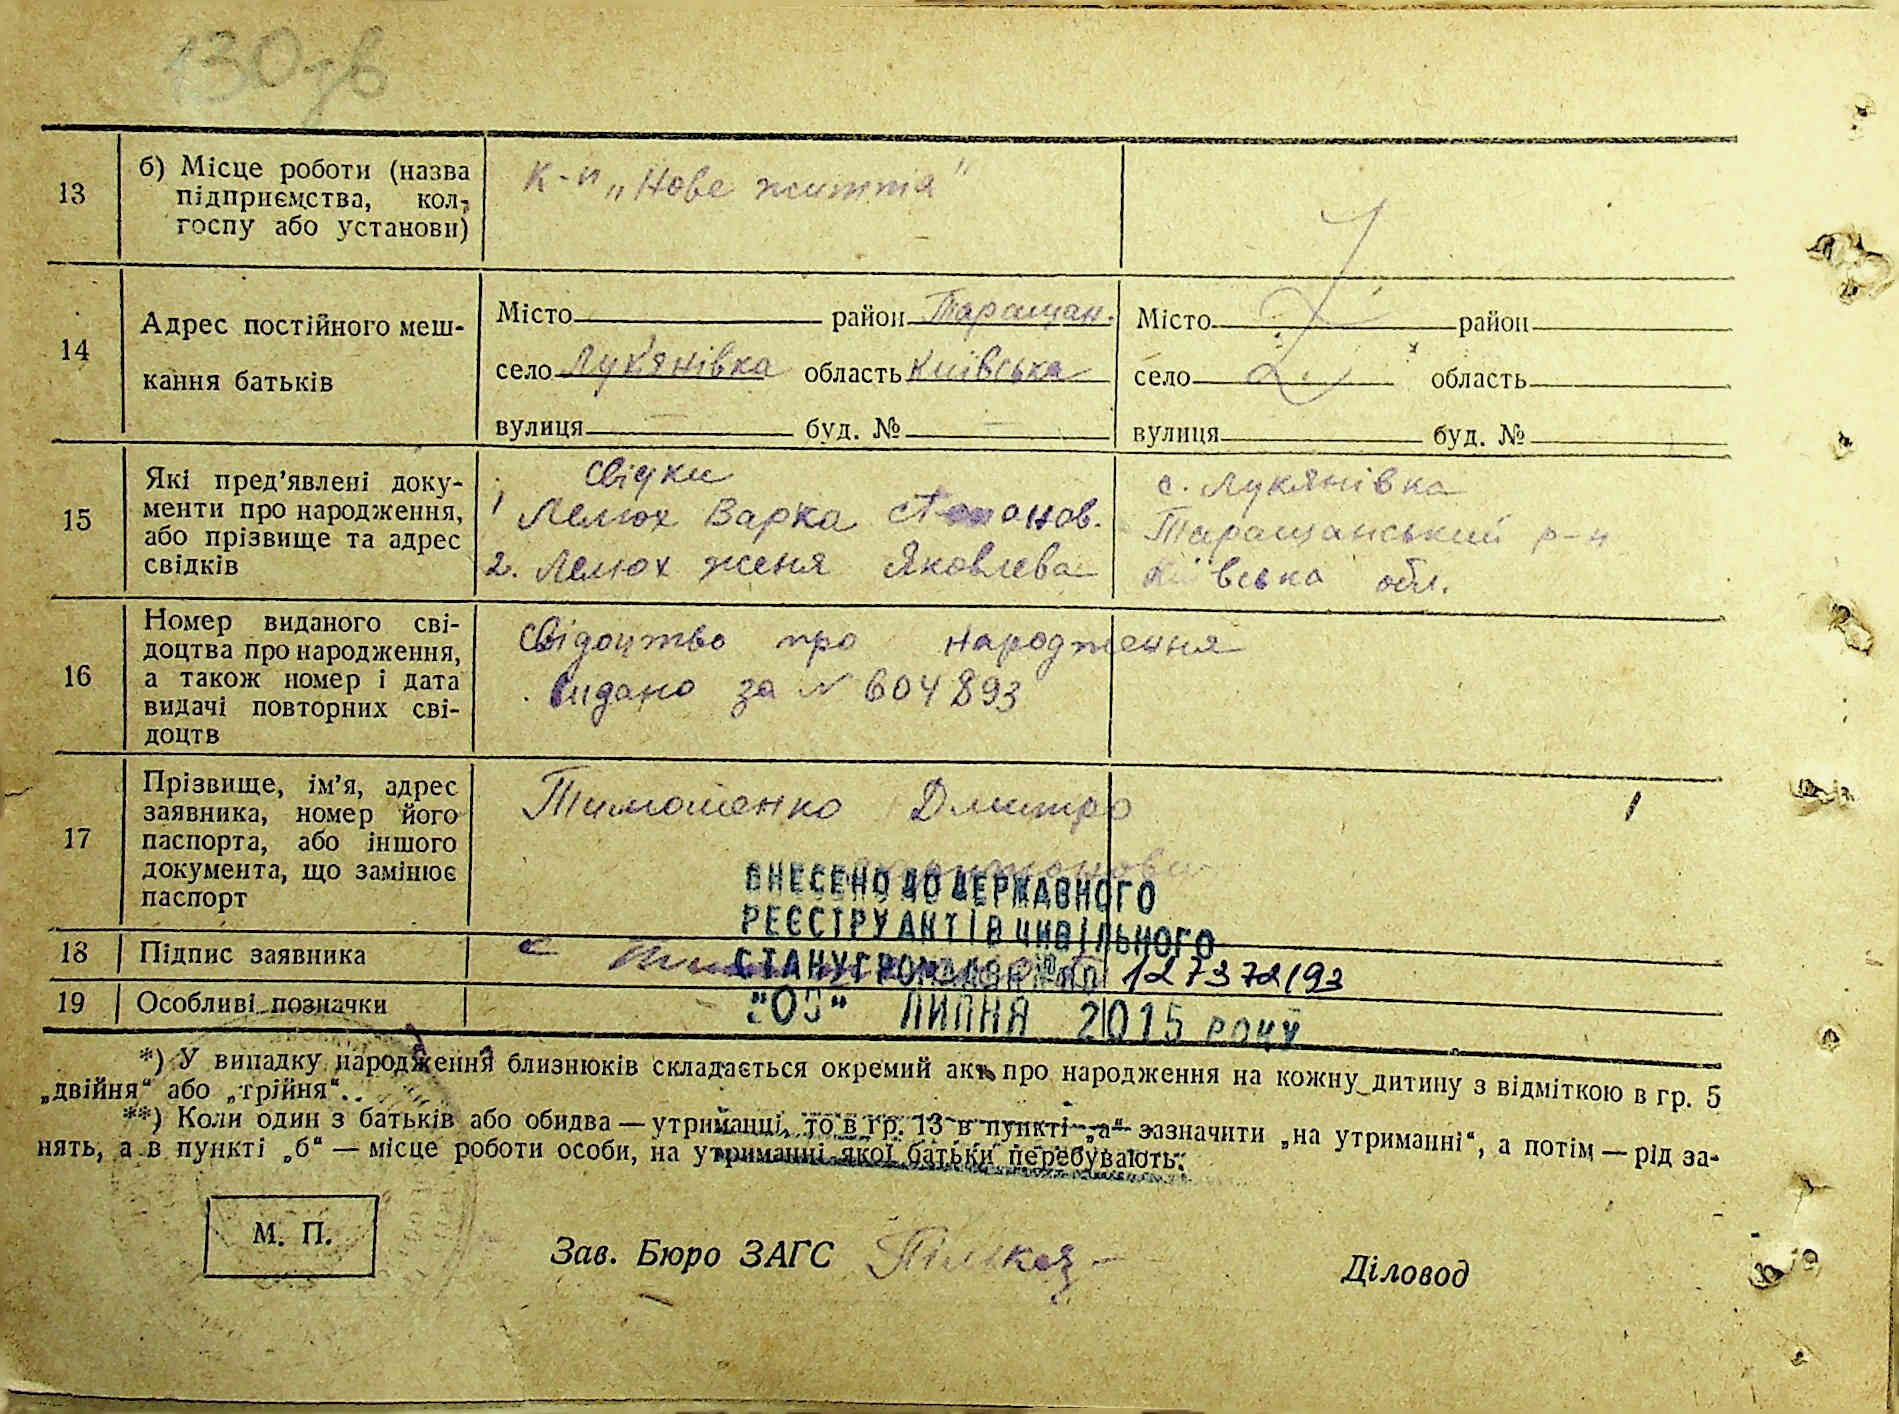 130 зв
13 б) Місце роботи (назва підприємства, колгоспу або установи) К-п „Нове життя"
14 Адрес постійного мешкання батьків
Місто район Таращан. Місто район
село Лук'янівка область Київська село область
вулиця — буд. № — вулиця буд. №
15 Які пред'явлені документи про народження, або прізвище та адрес свідків
свідки
1 Лелюх Варка
2. Лелюх женя Яковлева
с. Лукянівка
Таращанський р-н
Київська обл.
16 Номер виданого свідоцтва про народження, а також номер і дата видачі повторних свідоцтв
Свідоцтво про народження
видано за N 604893
17 Прізвище, ім'я, адрес заявника, номер його паспорта, або іншого документа, що замінює паспорт
Тимошенко Дмитро
ВНЕСЕНО ДО ДЕРЖАВНОГО
РЕЄСТРУ АКТІВ ЦИВІЛЬНОГО
18 Підпис заявника
СТАНУ ГРОМАДЯН № 12737293
19 Особливі позначки
ЛИПНЯ 2015 РОКУ
*) У випадку народження близнюків складається окремий акт про народження на кожну дитину з відміткою в гр. 5
„двійня" або „трійня".
**) Коли один з батьків або обидва — утриманці, то в гр. 13 в пункті „а" зазначити „на утриманні", а потім — рід за-
нять, а в пункті „б" — місце роботи особи, на утриманні якої батьки перебувають.
М. П.
Зав. Бюро ЗАГС
Діловод